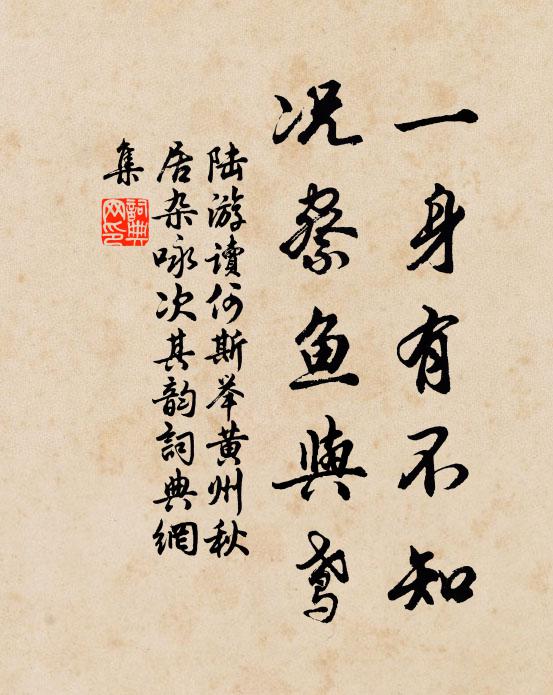 一身有不知
况察鱼與鸢
陆游讀何斯举黄州秋
居杂咏次其韵詞典網
集
詞典网印